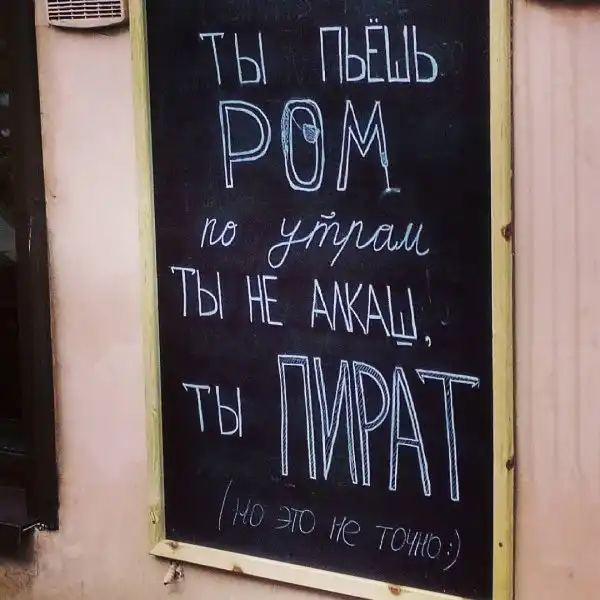 ТЫ ПЬЁШЬ
РОМ
по утрам
ТЫ НЕ АЛКАШ,
ТЫ ПИРАТ
(но это не точно:)